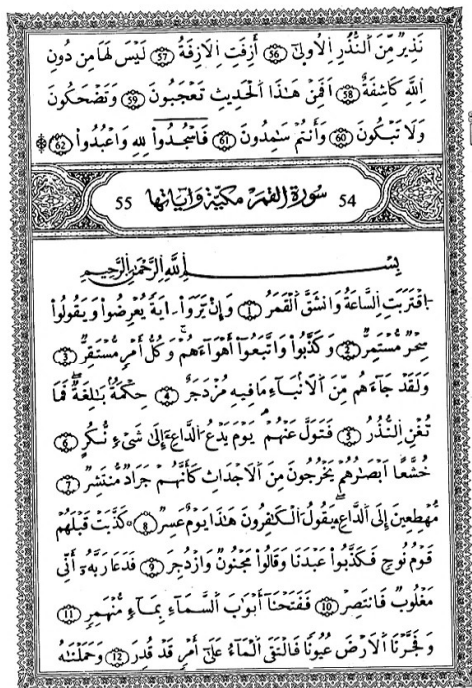 نَذِيرٌ مِّنَ اَلنُّذُرِ اِلُاولَىٰٓ (56) أَزِفَتِ اِلَازِفَةُ (57) لَيْسَ لَهَا مِن دُونِ
اِللَّهِ كَاشِفَةٌ (58) اَفَمِنْ هَٰذَا اَلْحَدِيثِ تَعْجَبُونَ (59) وَتَضْحَكُونَ
وَلَا تَبْكُونَ (60) وَأَنتُمْ سَٰمِدُونَ (61) فَاسْجُدُواْ لِلهِ وَاعْبُدُواْ (62)
55 سورة القمر مكية وآياتها 54
بِسْــــمِ اِللَّهِ اِلرَّحْمَٰنِ اِلرَّحِيمِ
اِقْتَرَبَتِ اِلسَّاعَةُ وَانشَقَّ اَلْقَمَرُ (1) وَإِنْ يَّرَوَاْ ـ ايَةً يُعْرِضُواْ وَيَقُولُواْ
سِحْرٌ مُّسْتَمِرٌّ (2) وَكَذَّبُواْ وَاتَّبَعُواْ أَهْوَآءَهُمْ وَكُلُّ أَمْرٍ مُّسْتَقِرٌّ (3)
وَلَقَدْ جَآءَهُم مِّنَ اَلَانۢبَآءِ مَا فِيهِ مُزْدَجَرٌ (4) حِكْمَةٌ بَٰلِغَةٌ فَمَا
تُغْنِ اِلنُّذُرُ (5) فَتَوَلَّ عَنْهُمْ يَوْمَ يَدْعُ اَلدَّاعِ إِلَىٰ شَےْءٍ نُّكُرٍ (6)
خُشَّعاً اَبْصَٰرُهُمْ يَخْرُجُونَ مِنَ اَلَاجْدَاثِ كَأَنَّهُمْ جَرَادٌ مُّنتَشِرٌ (7)
مُّهْطِعِينَ إِلَى اَلدَّاعِ يَقُولُ اَلْكَٰفِرُونَ هَٰذَا يَوْمٌ عَسِرٌ (8) كَذَّبَتْ قَبْلَهُمْ
قَوْمُ نُوحٍ فَكَذَّبُواْ عَبْدَنَا وَقَالُواْ مَجْنُونٌ وَازْدُجِرَ (9) فَدَعَا رَبَّهُۥٓ أَنِّے
مَغْلُوبٌ فَانتَصِرْ (10) فَفَتَحْنَآ أَبْوَٰبَ اَلسَّمَآءِ بِمَآءٍ مُّنْهَمِرٍ (11)
وَفَجَّرْنَا اَلَارْضَ عُيُوناً فَالْتَقَى اَلْمَآءُ عَلَىٰٓ أَمْرٍ قَدْ قُدِرَ (12) وَحَمَلْنَٰهُ